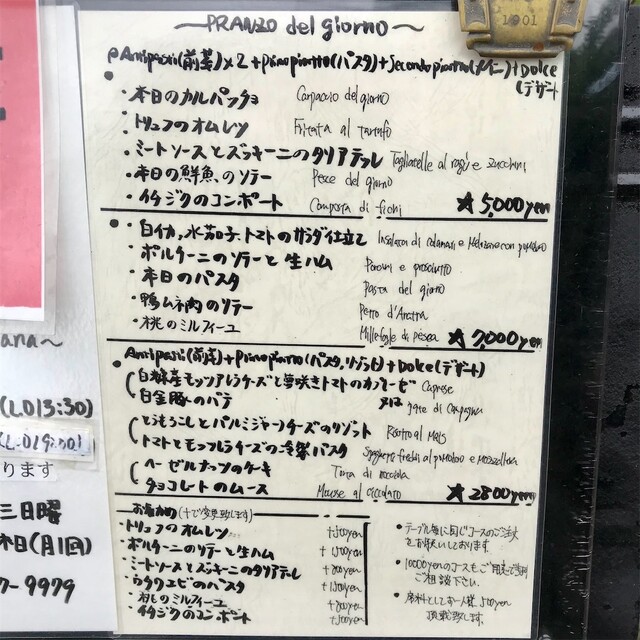 1901
PRANZO del giorno
Antipasti(前菜)×2+primo piatto(パスタ)+Secondo piatto(メイン)+Dolce
(デザート
・本日のカルパッチョ Carpaccio del giorno
・トリュフのオムレツ Fritata al tartufo
・ミートソースとズッキーニのタリアテッレ Tagliatelle al ragù e zucchini
・本日の鮮魚のソテー Pesce del giorno
・イチジクのコンポート Composta di fichi ★5,000yen
・白イカ、水茄子、トマトのサラダ仕立て Insalata di calamari e Melanzane con pomodoro
・ポルチーニのソテーと生ハム Porcini e prosciutto
・本日のパスタ Pasta del giorno
・鴨ムネ肉のソテー Petto d'Anatra
・桃のミルフィーユ Millefoglie di pesca ★7,000yen
Antipasti(前菜)+Primo piatto(パスタ,リゾット)+Dolce(デザート)
白糠産モッツァレラチーズと トマトのカプレーゼ Caprese
白金豚のパテ 又は Pate di Campagna
とうもろこしとパルミジャーノチーズのリゾット Risotto al Mais
トマトとモッツァレラチーズの冷製パスタ Spaghetti freddi al pomodoro e mozzarella
ヘーゼルナッツのケーキ Torta di nocciola
チョコレートのムース Mousse al cioccolato ★2800yen
お薦め(+で変更致します)
・トリュフのオムレツ
・ポルチーニのソテーと生ハム
・ミートソースとズッキーニのタリアテッレ
・ウチワエビのパスタ
・桃のミルフィーユ
・イチジクのコンポート
・テーブル毎に同じコースのご注文
をお願いしております。
・10000yenのコースもご用意
ご相談下さい。
・席料としてお一人様 500yen
頂戴致します。
ana~
(L.O13:30)
(L.O19:30)
ります
三日曜
休日(月1回)
7-9979